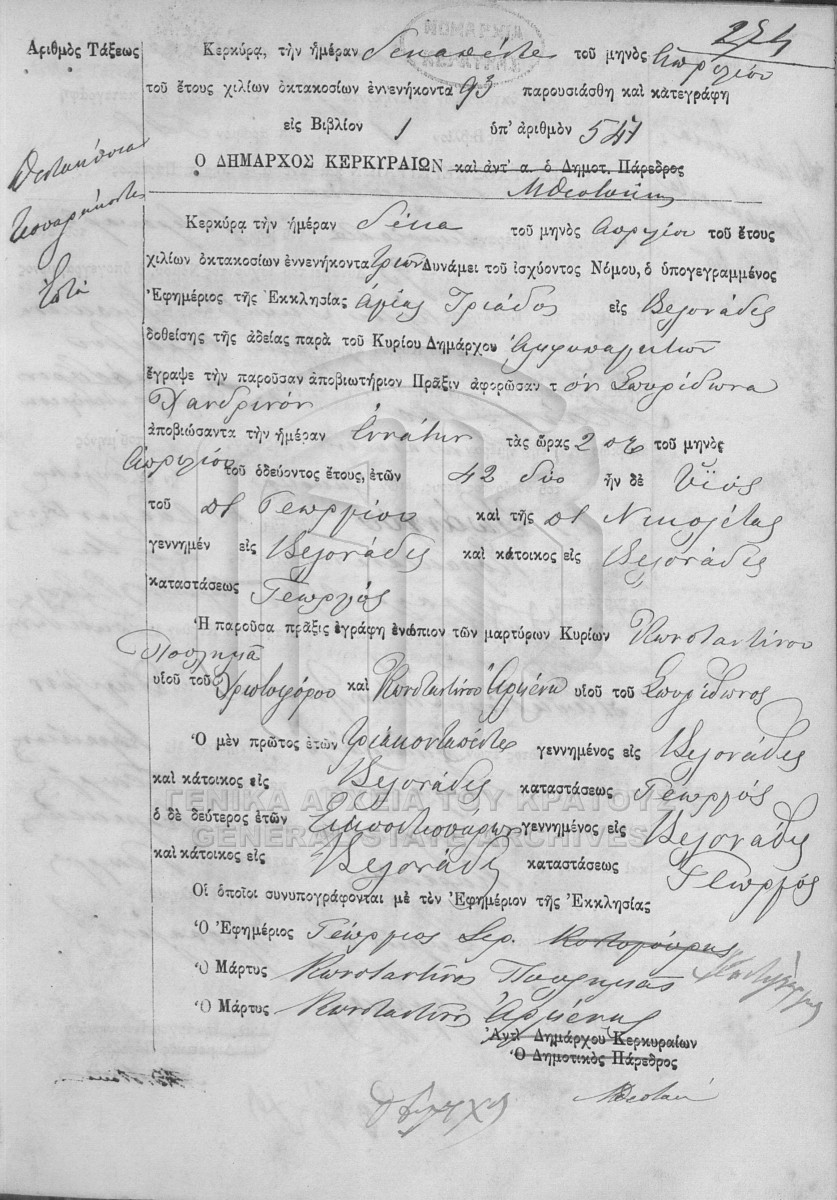 254
Ἀριθμὸς Τάξεως
Κερκύρᾳ, τὴν ἡμέραν δεκαπέντε τοῦ μηνὸς Ἀπριλίου
τοῦ ἔτους χιλίων ὀκτακοσίων ἐννενήκοντα 93 παρουσιάσθη καὶ κατεγράφη
εἰς Βιβλίον 1 ὑπ' ἀριθμὸν 547
Πεντακόσια
τεσσαρήκοντα
ἑπτά
Ο ΔΗΜΑΡΧΟΣ ΚΕΡΚΥΡΑΙΩΝ καὶ ἀντ' α. ὁ Δημοτ. Πάρεδρος
Κερκύρᾳ τὴν ἡμέραν δέκα τοῦ μηνὸς Ἀπριλίου τοῦ ἔτους
χιλίων ὀκτακοσίων ἐννενήκοντα τριῶν Δυνάμει τοῦ ἰσχύοντος Νόμου, ὁ ὑπογεγραμμένος
Ἐφημέριος τῆς Ἐκκλησίας Ἁγίας Τριάδος εἰς Βελονάδες
δοθείσης τῆς ἀδείας παρὰ τοῦ Κυρίου Δημάρχου Ἀμφιπαγιτῶν
ἔγραψε τὴν παροῦσαν ἀποβιωτήριον Πρᾶξιν ἀφορῶσαν τ όν Σπυρίδωνα
Χανδρινόν
ἀποβιώσαντα τὴν ἡμέραν ἐννάτην τὰς ὥρας 2 τοῦ μηνὸς
Ἀπριλίου τοῦ ὁδεύοντος ἔτους, ἐτῶν 42 δύο ἦν δὲ υἱός
τοῦ Γεωργίου καὶ τῆς Νικολέτας
γεννημέν εἰς Βελονάδες καὶ κάτοικος εἰς Βελονάδες
καταστάσεως Γεωργός
Ἡ παροῦσα πρᾶξις ἐγράφη ἐνώπιον τῶν μαρτύρων Κυρίων Κωνσταντίνου
Πουλημᾶ
υἱοῦ τοῦ Χριστοφόρου καὶ Κωνσταντίνου Ἀρμένη υἱοῦ τοῦ Σπυρίδωνος
Ὁ μὲν πρῶτος ἐτῶν τριάκονταπέντε γεννημένος εἰς Βελονάδες
καὶ κάτοικος εἰς Βελονάδες καταστάσεως Γεωργός
ΓΕΝΙΚΑ ΑΡΧΕΙΑ ΤΟΥ ΚΡΑΤΟΥΣ
ὁ δὲ δεύτερος ἐτῶν εἰκοσιτεσσάρων γεννημένος εἰς Βελονάδες
GENERAL STATE ARCHIVES
καὶ κάτοικος εἰς Βελονάδες καταστάσεως Γεωργός
Οἱ ὁποῖοι συνυπογράφονται μὲ τὸν Ἐφημέριον τῆς Ἐκκλησίας
Ὁ Ἐφημέριος Γεώργιος Ιερ.
Ὁ Μάρτυς Κωνσταντῖνος Πουλημᾶς
Ὁ Μάρτυς Κωνσταντῖνος Ἀρμένης
Ἀντὶ Δημάρχου Κερκυραίων
Ὁ Δημοτικὸς Πάρεδρος